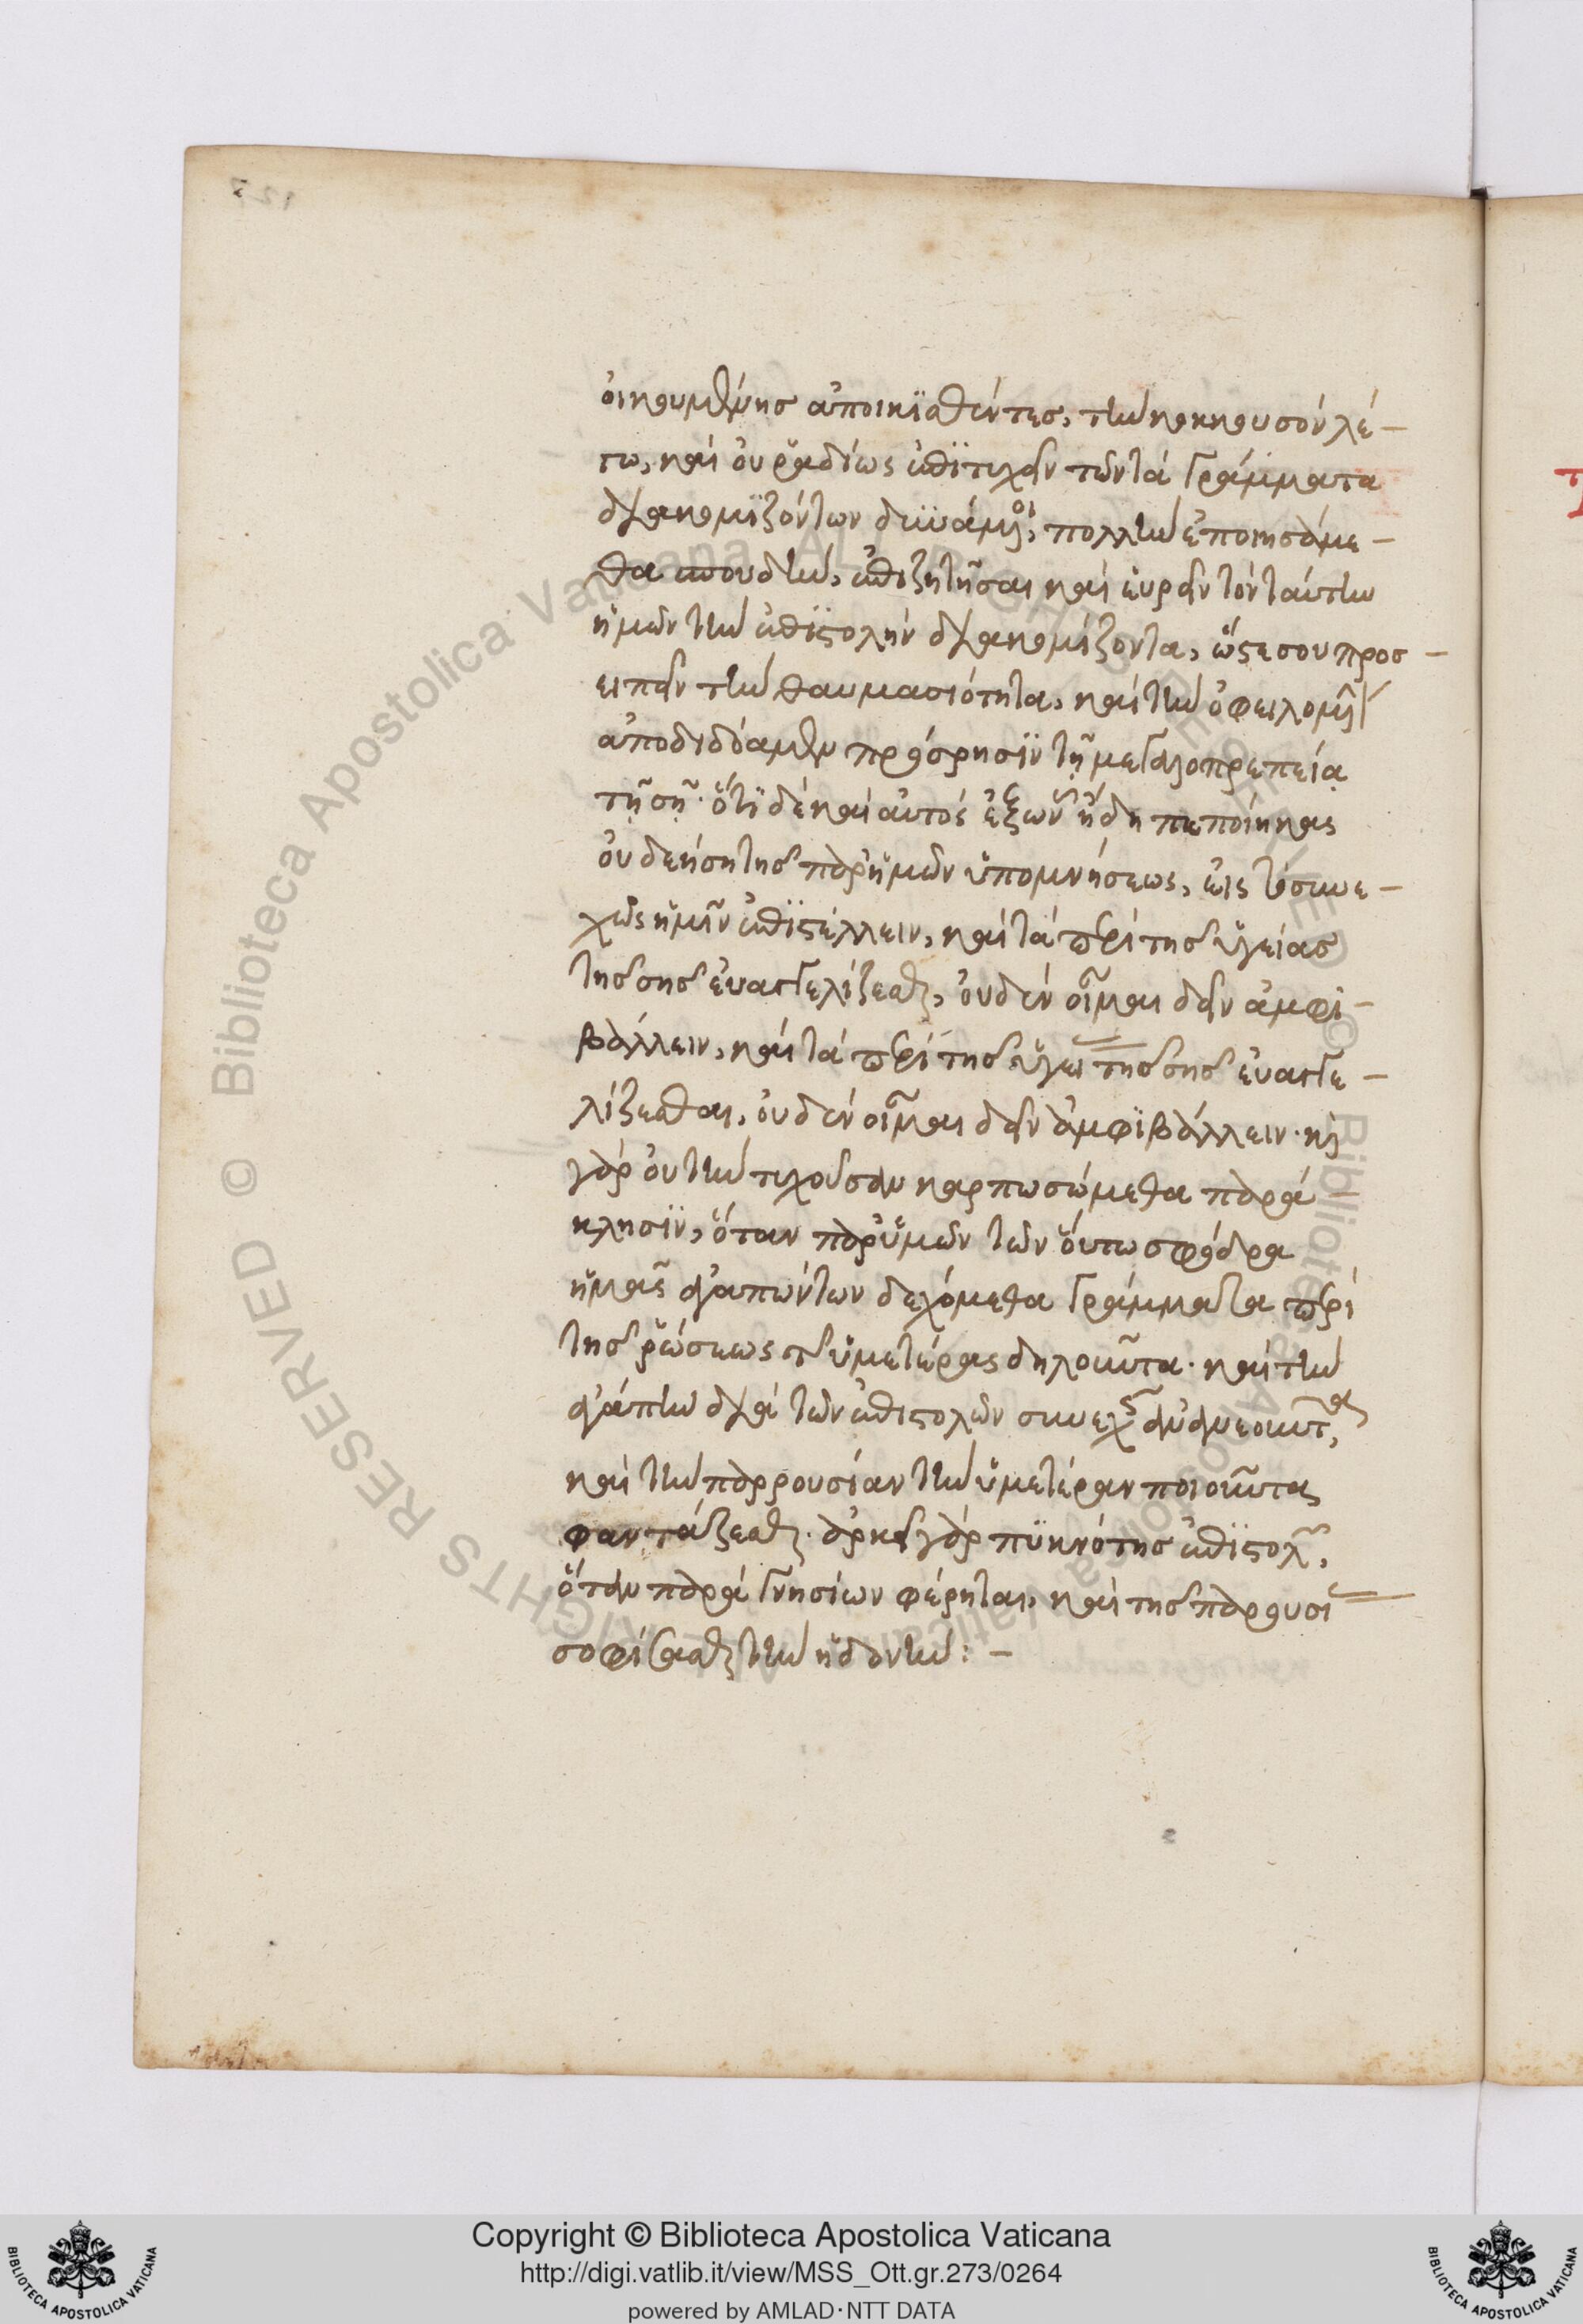 οἰκουμένης ἀποικισθέντες, τὴν κοκκουσὸν λέ-
γω, καὶ οὐ ῥαδίως ἐπιτυχεῖν τῶν τὰ γράμματα
διακομιζόντων δυνάμενοι, πολλὴν ἐποιησάμε-
θα σπουδὴν, ἐπιζητῆσαι καὶ εὑρεῖν τὸν ταύτην
ἡμῶν τὴν ἐπιστολὴν διακομίζοντα, ὥστε σου προσ-
ειπεῖν τὴν θαυμασιότητα, καὶ τὴν ὀφειλομένην
ἀποδιδόαμεν πρόσρησιν τῇ μεγαλοπρεπείᾳ
τῇ σῇ· ὅτι δὲ καὶ αὐτὸς ἐξ ὧν ἤδη πεποίηκας
οὐ δεήσῃ τῆς παρ' ἡμῶν ὑπομνήσεως, εἰς τὸ συνε-
χῶς ἡμῖν ἐπιστέλλειν, καὶ τὰ περὶ τῆς ὑγείας
τῆς σῆς εὐαγγελίζεσθαι, οὐδὲν οἶμαι δεῖν ἀμφι-
βάλλειν, καὶ τὰ περὶ τῆς ὑγει τῆς σῆς εὐαγγε-
λίζεσθαι, οὐδὲν οἶμαι δεῖν ἀμφιβάλλειν· καὶ
γὰρ οὐ τὴν τυχοῦσαν καρπωσώμεθα παρά
κλησιν, ὅταν παρ' ὑμῶν τῶν οὕτω σφόδρα
ἡμᾶς ἀγαπώντων δεχόμεθα γράμματα περὶ
τῆς ῥώσεως τῆς ὑμετέρας δηλοῦντα· καὶ τὴν
ἀγάπην διὰ τῶν ἐπιστολῶν συνεχῶς ἀνανεοῦντας,
καὶ τὴν παρρουσίαν τὴν ὑμετέραν ποιοῦντας
φαντάζεσθαι· ἀρκεῖ γὰρ πυκνότης ἐπιστολῶν,
ὅταν παρὰ γνησίων φέρηται, καὶ τῆς παρουσι
σοφίσασθαι τὴν ἡδονήν: -
Copyright © Biblioteca Apostolica Vaticana
http://digi.vatlib.it/view/MSS_Ott.gr.273/0264
powered by AMLAD·NTT DATA